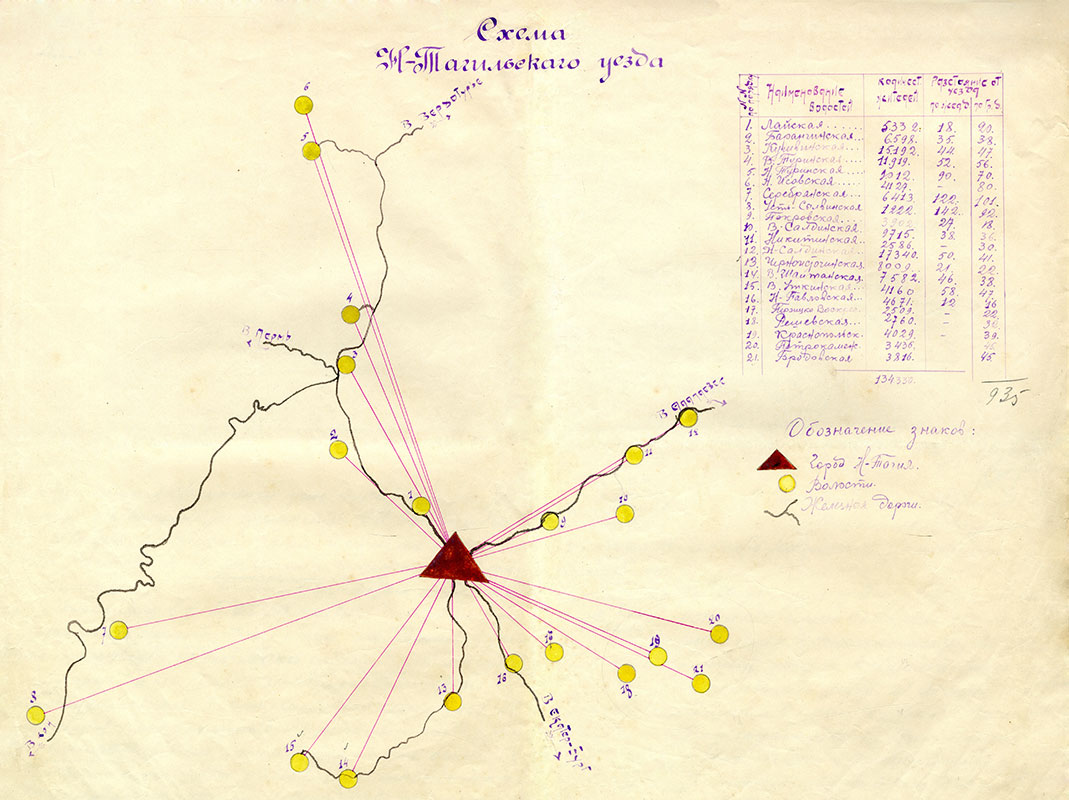 Схема
Н-Тагильскаго уезда
№№
Наименование
волостей
Количест
жителей
Разстояние от
уезда
1. Лайская 5332. 18. 20.
2. Баранчинская 6598. 35. 38.
3. Кушвинская 15192. 44. 47.
4. В. Туринская 11919. 52. 56.
5. Н. Туринская 90. 70.
6. Н. Исовская 4127. - 80.
7. Серебрянская 6413. 122. 101.
8. Усть-Сылвинская 1222. 142. 92.
9. Покровская 27. 18.
10. В-Салдинская 9715. 38.
11. Никитинская 2586. - 30.
12. Н-Салдинская 17340. 50. 41.
13. Черноисточинская 8009. 21. 22.
14. В. Шайтанская 7582. 46. 38.
15. В. Уткинская 4160 58. 47.
16. Н-Павловская 4671. 12 16
17. Троицко 2509. - 22.
18. 2760. -
19. Краснопольск. 4029. - 39.
20. Петрокаменс. 3436.
21. 3816. 45.
134330.
935
Обозначение знаков:
Город Н-Тагил.
Волости.
Железная дорога.
6
5
В Верхотурье
4
В Пермь
3
2
1
В Алапаевск
12
11
10
9
7
8
13
14
15
16
18
19
20
21
В Екатер-бург